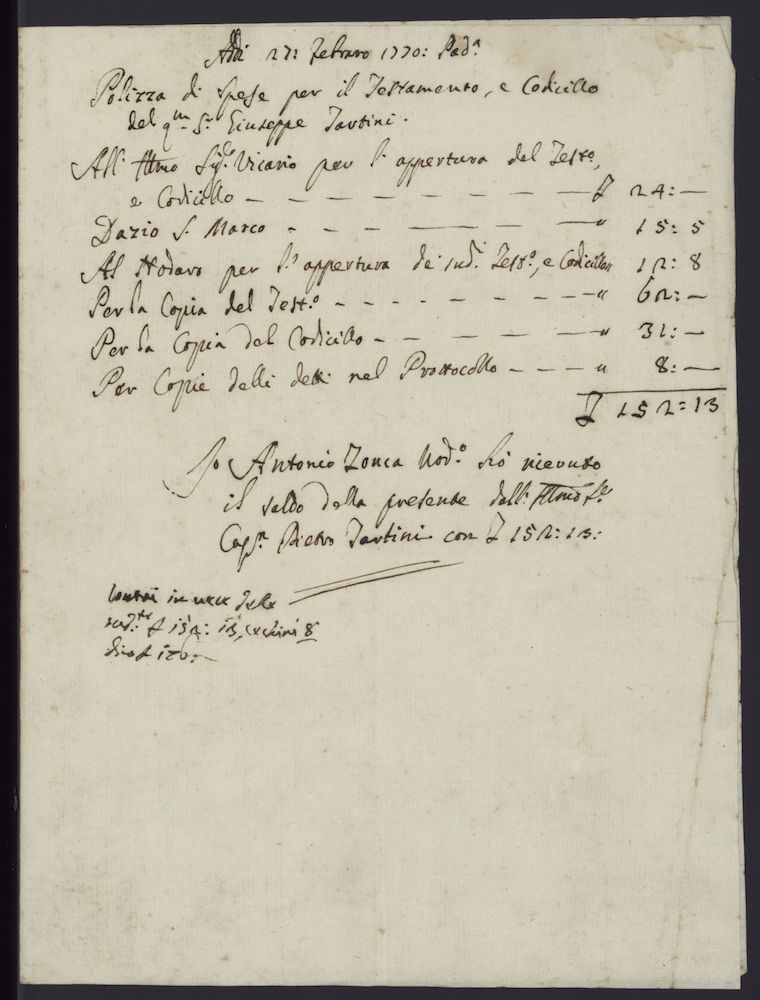 Addi 27: Febraro 1770: Pad.ª
Polizza di spese per il Testamento, e Codicillo
del q.m S.r Giuseppe Tartini.
All' Illmo Sig.r Vicario per l'appertura del Test.o,
e Codicillo - - - - - - - - £ 24:—
Dazio S. Marco - - - - - - " 15: 5
Al Nodaro per l'appertura de' sud.i Test.o, e Codicillo " 12: 8
Per la Copia del Test.o - - - - - - - - " 62:—
Per la Copia del Codicillo - - - - - - " 31:—
Per Copie delli detti nel Prottocollo - - - - " 8:—
£ 152:13
Io Antonio Zonca Nod.o hò ricevuto
il saldo della presente dall' Illmo S.r
Cap.n Pietro Tartini con £ 152:13:
Contai in vece delle
sud.te £ 152: 13, zechini 8
dico £ 176:—